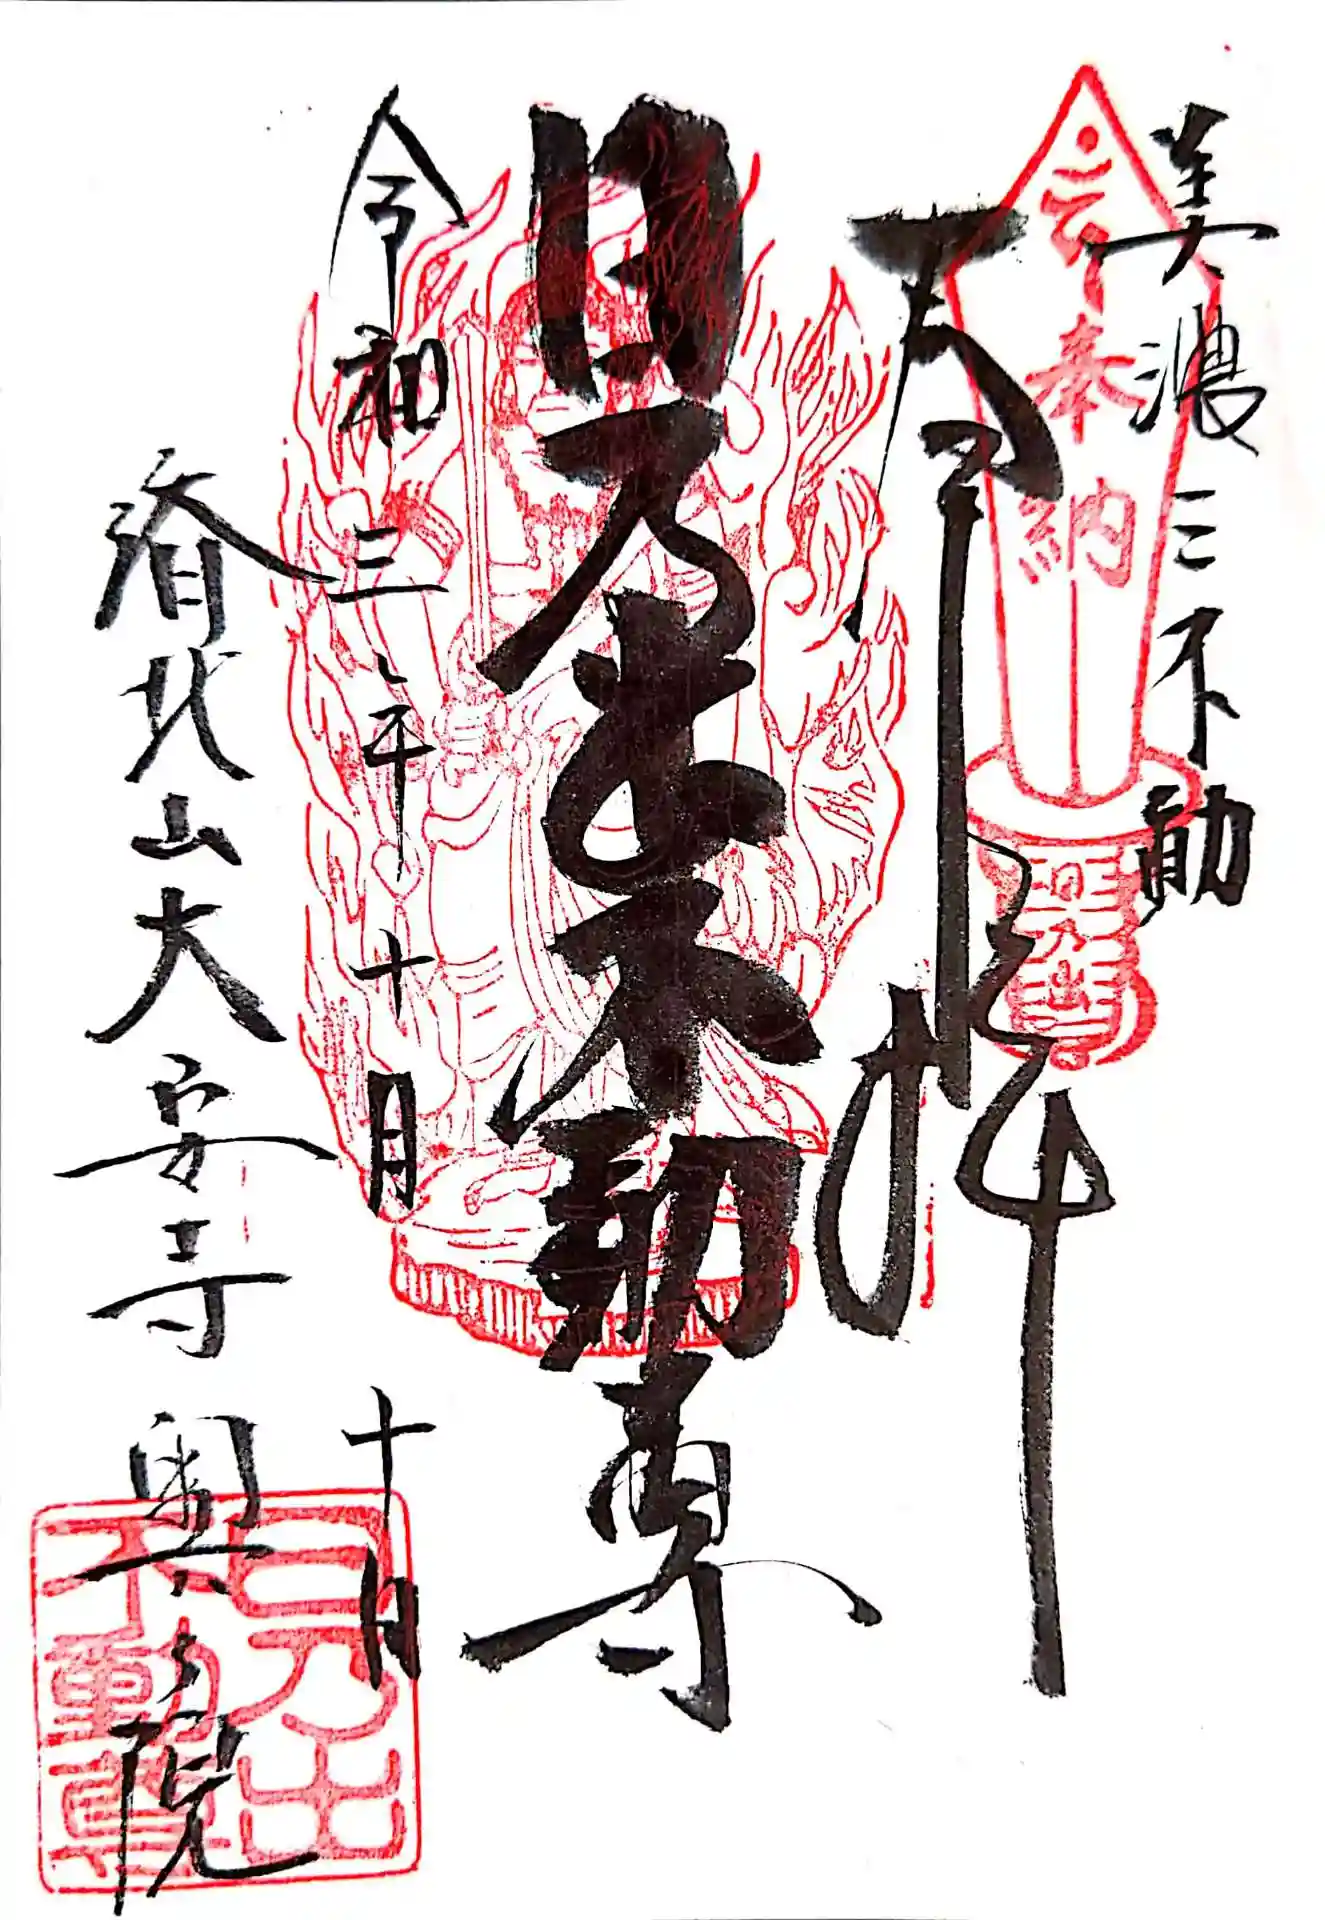 美濃三不動
奉納
奉拝
日乃出不動尊
令和三年十月十日
済北山大安寺奥之院
日乃出
不動尊